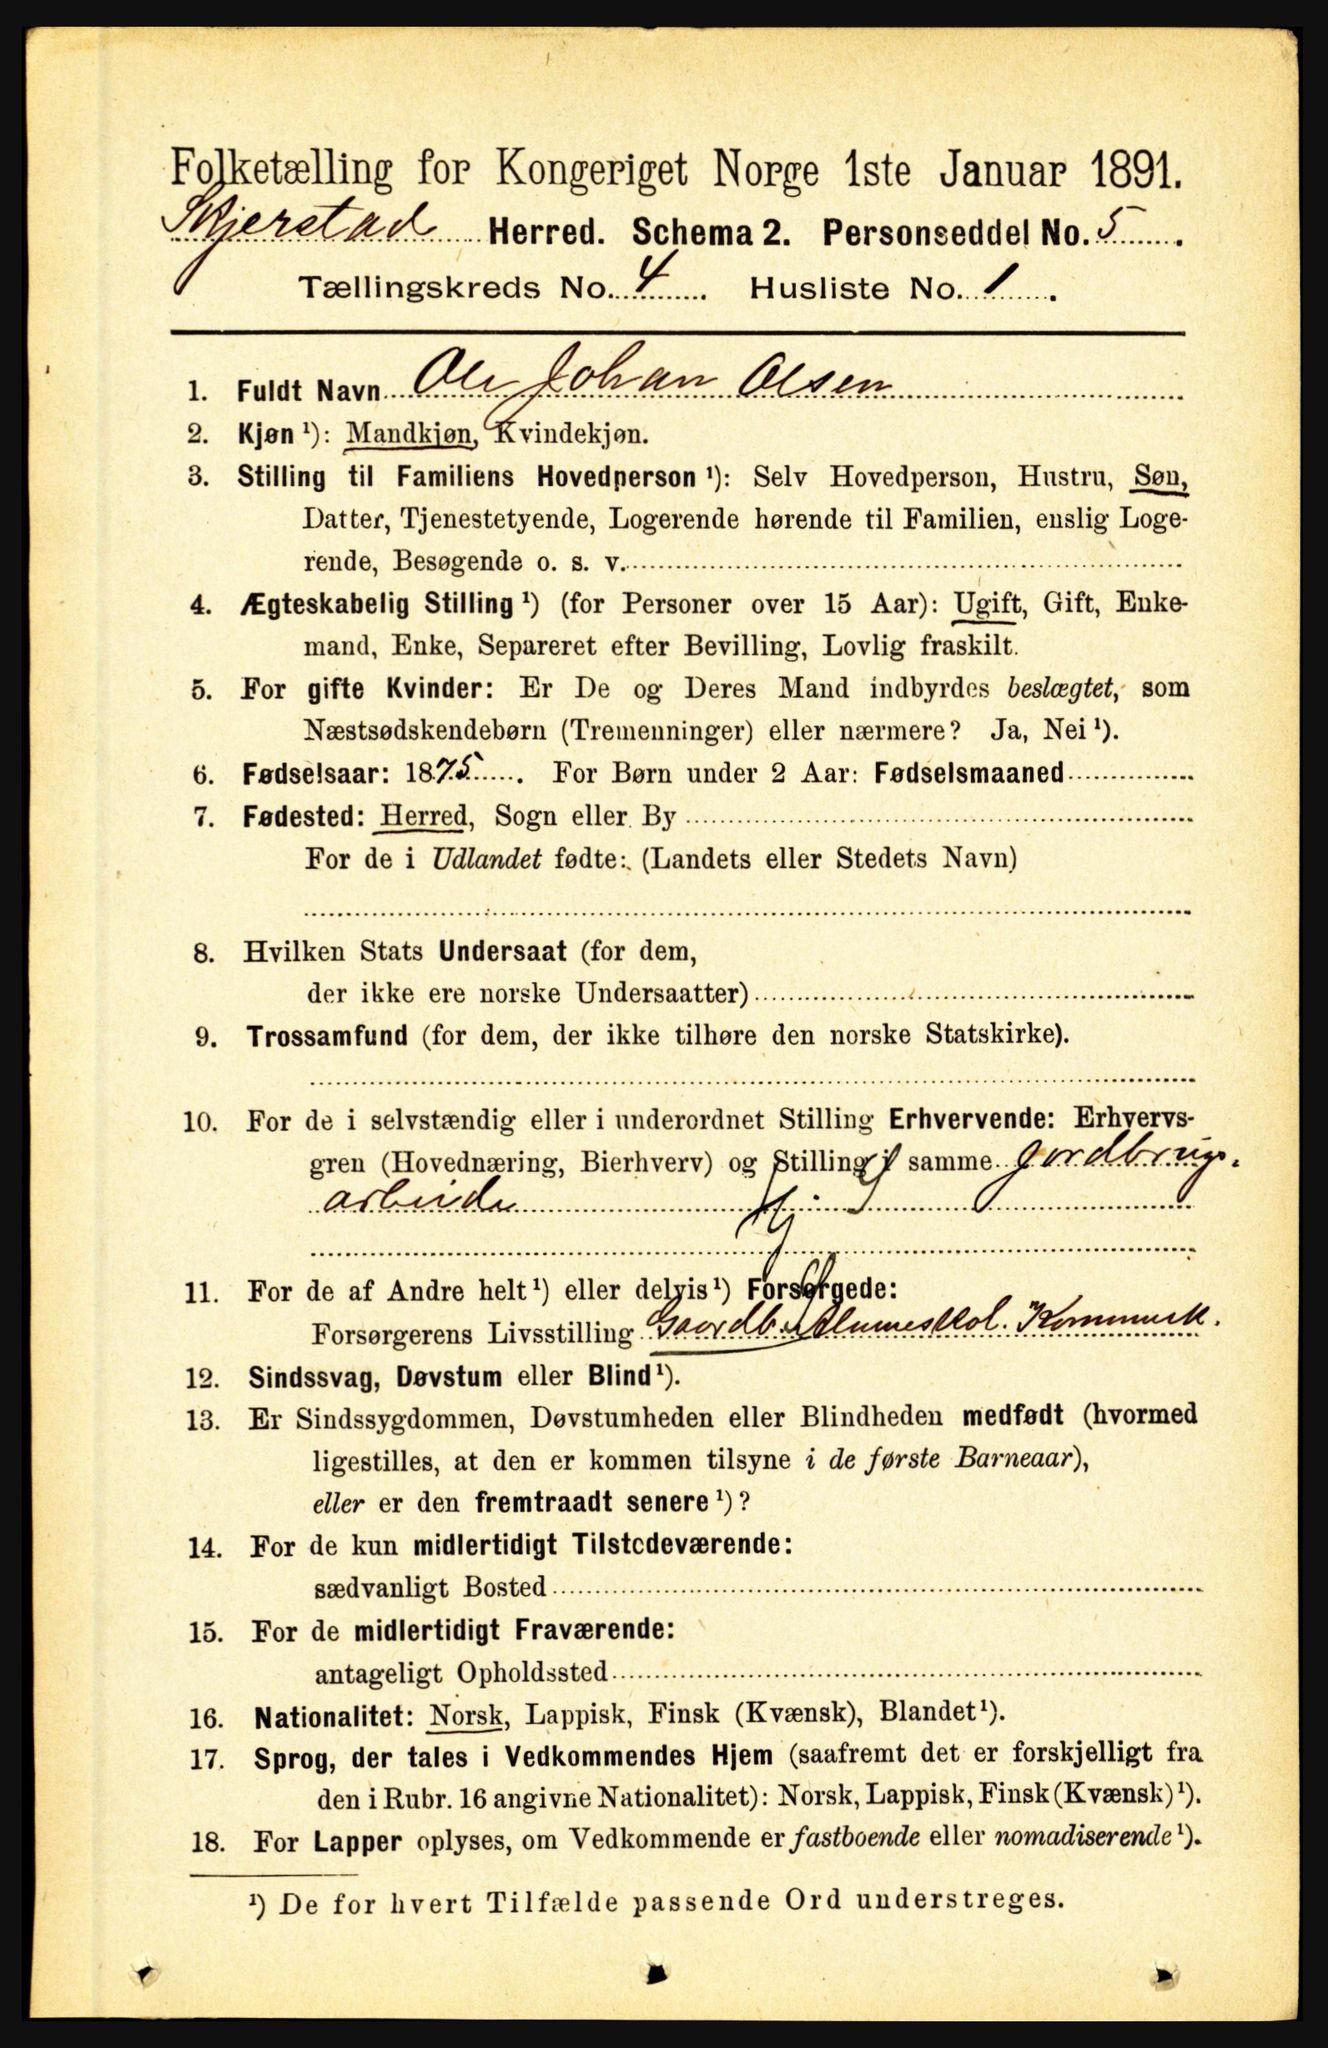 Folketælling for Kongeriget Norge 1ste Januar 1891.
Skjerstad Herred. Schema 2. Personseddel No. 5.
Tællingskreds No. 4. Husliste No. 1.
1. Fuldt Navn Ole Johan Olsen
2. Kjøn ¹): Mandkjøn, Kvindekjøn.
3. Stilling til Familiens Hovedperson ¹): Selv Hovedperson, Hustru, Søn,
Datter, Tjenestetyende, Logerende hørende til Familien, enslig Loge-
rende, Besøgende o. s. v.
4. Ægteskabelig Stilling ¹) (for Personer over 15 Aar): Ugift, Gift, Enke-
mand, Enke, Separeret efter Bevilling, Lovlig fraskilt.
5. For gifte Kvinder: Er De og Deres Mand indbyrdes beslægtet, som
Næstsødskendebørn (Tremenninger) eller nærmere? Ja, Nei ¹).
6. Fødselsaar: 1875. For Børn under 2 Aar: Fødselsmaaned
7. Fødested: Herred, Sogn eller By
For de i Udlandet fødte: (Landets eller Stedets Navn)
8. Hvilken Stats Undersaat (for dem,
der ikke ere norske Undersaatter)
9. Trossamfund (for dem, der ikke tilhøre den norske Statskirke).
10. For de i selvstændig eller i underordnet Stilling Erhvervende: Erhvervs-
gren (Hovednæring, Bierhverv) og Stilling i samme Jordbrugs-
arbeide
11. For de af Andre helt ¹) eller delvis ¹) Forsørgede:
Forsørgerens Livsstilling Gaardb.
12. Sindssvag, Døvstum eller Blind ¹).
13. Er Sindssygdommen, Døvstumheden eller Blindheden medfødt (hvormed
ligestilles, at den er kommen tilsyne i de første Barneaar),
eller er den fremtraadt senere ¹)?
14. For de kun midlertidigt Tilstedeværende:
sædvanligt Bosted
15. For de midlertidigt Fraværende:
antageligt Opholdssted
16. Nationalitet: Norsk, Lappisk, Finsk (Kvænsk), Blandet ¹).
17. Sprog, der tales i Vedkommendes Hjem (saafremt det er forskjelligt fra
den i Rubr. 16 angivne Nationalitet): Norsk, Lappisk, Finsk (Kvænsk) ¹).
18. For Lapper oplyses, om Vedkommende er fastboende eller nomadiserende ¹).
¹) De for hvert Tilfælde passende Ord understreges.